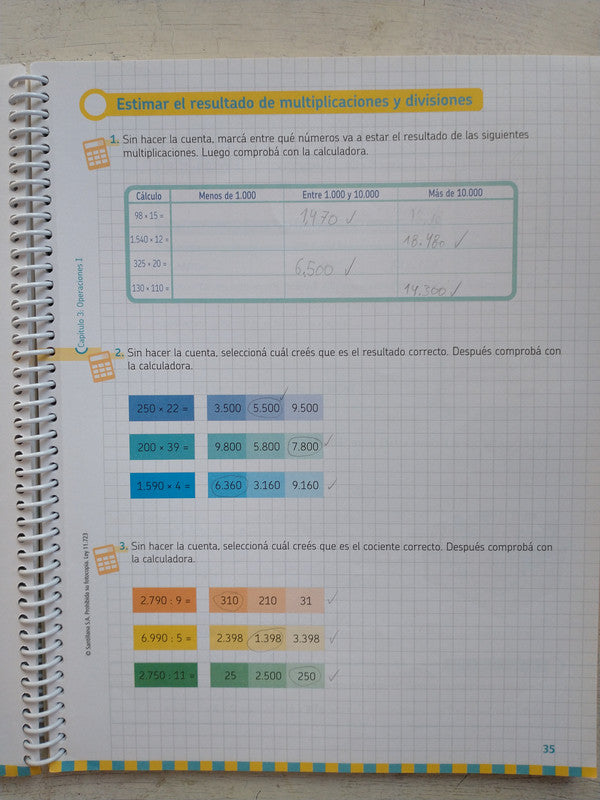 Estimar el resultado de multiplicaciones y divisiones
1. Sin hacer la cuenta, marcá entre qué números va a estar el resultado de las siguientes
multiplicaciones. Luego comprobá con la calculadora.
Cálculo Menos de 1.000 Entre 1.000 y 10.000 Más de 10.000
98 × 15 = 1.470 ✓
1.540 × 12 = 18.480 ✓
325 × 20 = 6.500 ✓
130 × 110 = 14.300 ✓
Capítulo 3: Operaciones I
2. Sin hacer la cuenta, seleccioná cuál creés que es el resultado correcto. Después comprobá con
la calculadora.
250 × 22 = 3.500 5.500 9.500 ✓
200 × 39 = 9.800 5.800 7.800 ✓
1.590 × 4 = 6.360 3.160 9.160 ✓
© Santillana S.A. Prohibida su fotocopia. Ley 11.723
3. Sin hacer la cuenta, seleccioná cuál creés que es el cociente correcto. Después comprobá con
la calculadora.
2.790 : 9 = 310 210 31 ✓
6.990 : 5 = 2.398 1.398 3.398 ✓
2.750 : 11 = 25 2.500 250 ✓
35